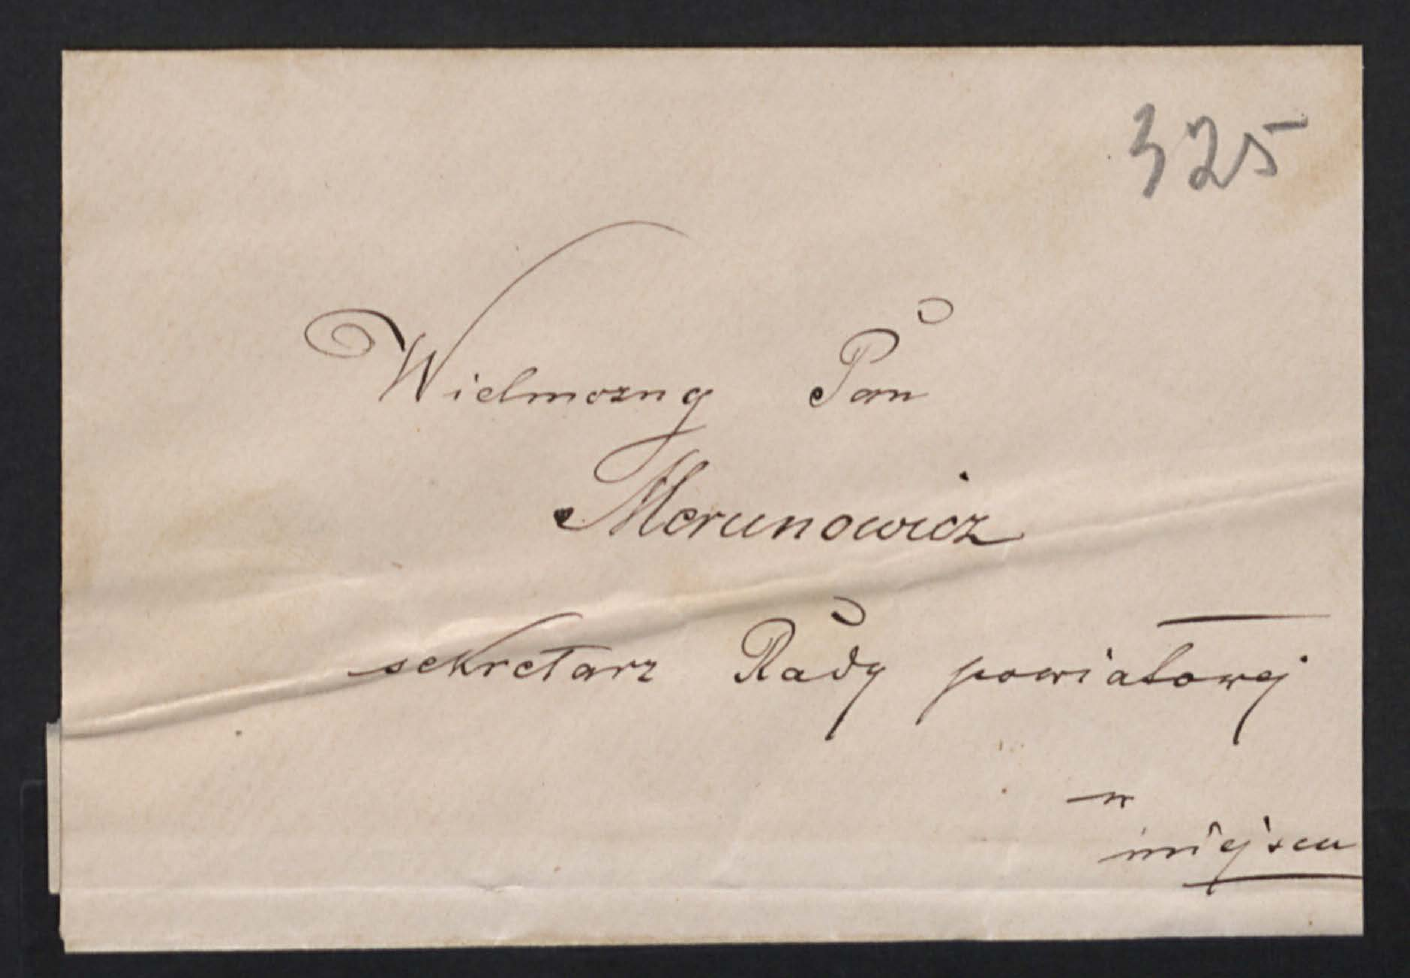 325
Wielmozny Pan
Merunowicz
sekretarz Rady powiatowej
w
miejscu